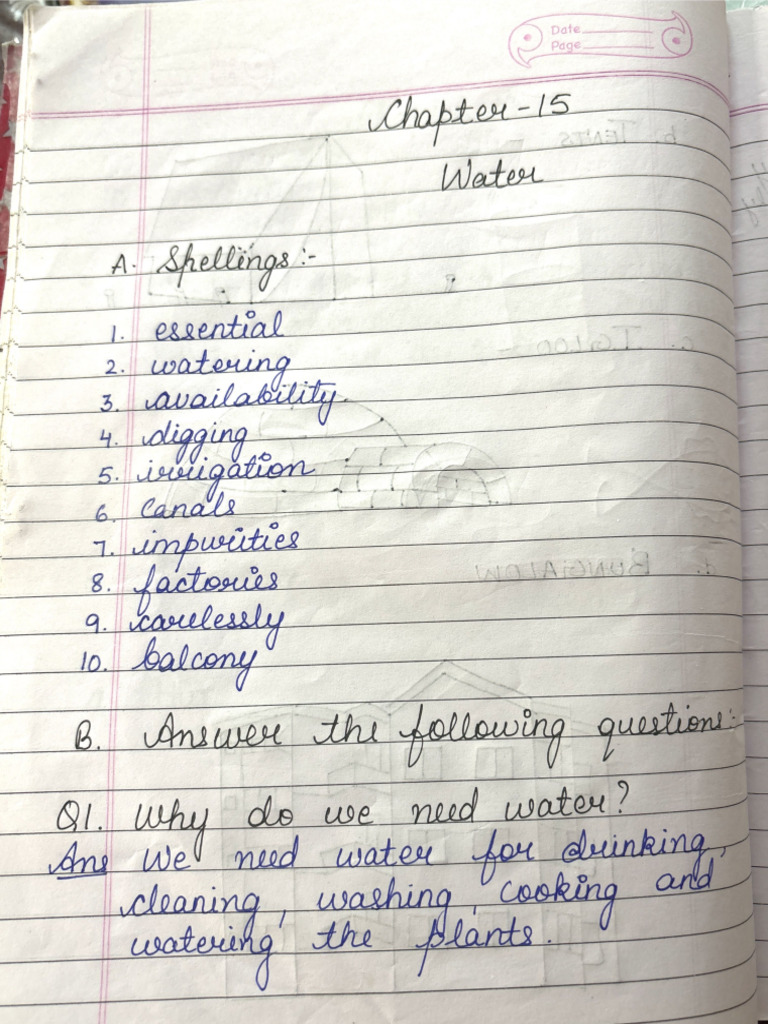 Date
Page
Chapter-15
Water
A. Spellings:-
1. essential
2. watering
3. availability
4. digging
5. irrigation
6. canals
7. impurities
8. factories
9. carelessly
10. balcony
B. Answer the following questions:-
Q1. Why do we need water?
Ans We need water for drinking,
cleaning, washing, cooking and
watering the plants.